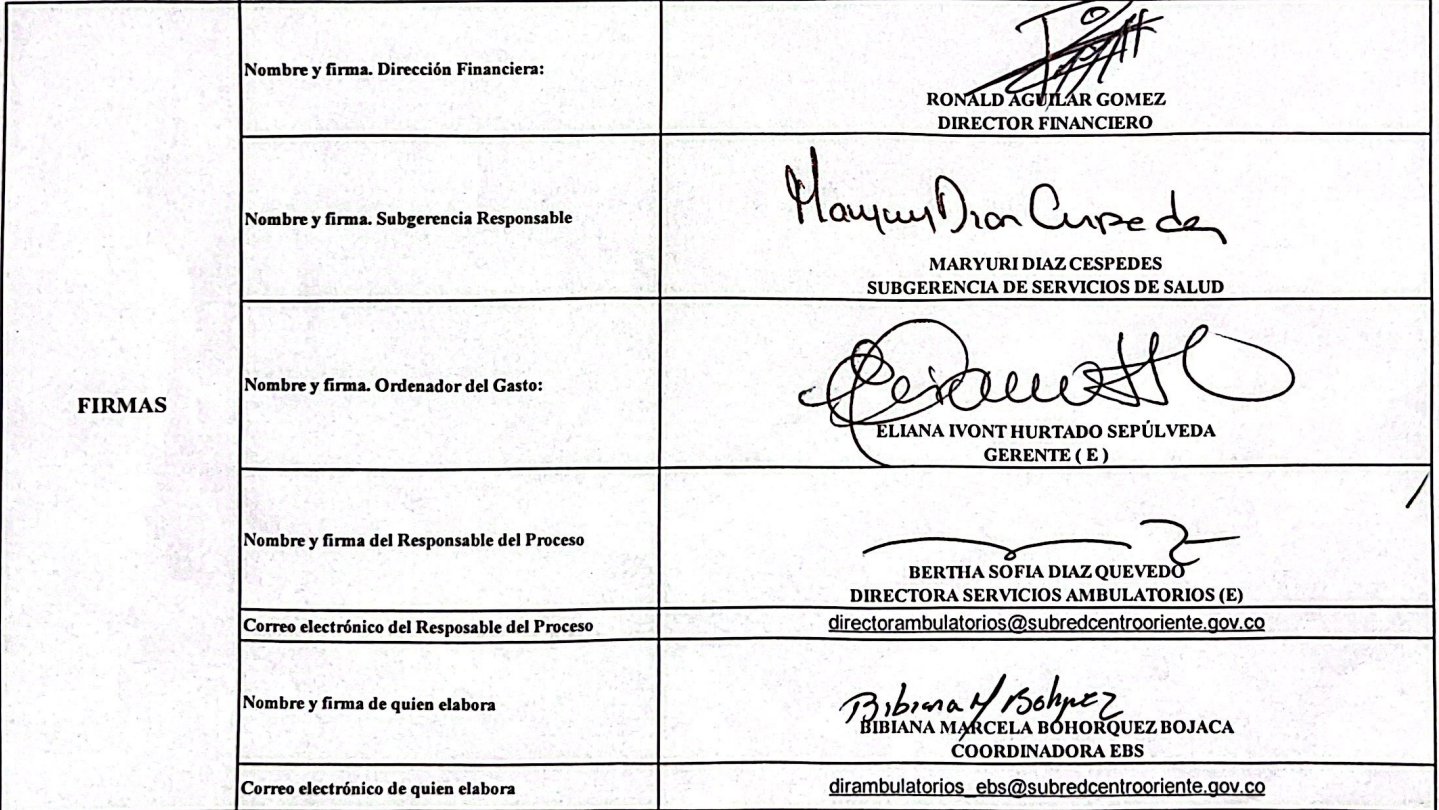 Nombre y firma. Dirección Financiera:
RONALD AGUILAR GOMEZ
DIRECTOR FINANCIERO
Nombre y firma. Subgerencia Responsable
MARYURI DIAZ CESPEDES
SUBGERENCIA DE SERVICIOS DE SALUD
FIRMAS
Nombre y firma. Ordenador del Gasto:
ELIANA IVONT HURTADO SEPÚLVEDA
GERENTE ( E )
Nombre y firma del Responsable del Proceso
BERTHA SOFIA DIAZ QUEVEDO
DIRECTORA SERVICIOS AMBULATORIOS (E)
Correo electrónico del Resposable del Proceso
directorambulatorios@subredcentrooriente.gov.co
Nombre y firma de quien elabora
BIBIANA MARCELA BOHORQUEZ BOJACA
COORDINADORA EBS
Correo electrónico de quien elabora
dirambulatorios_ebs@subredcentrooriente.gov.co